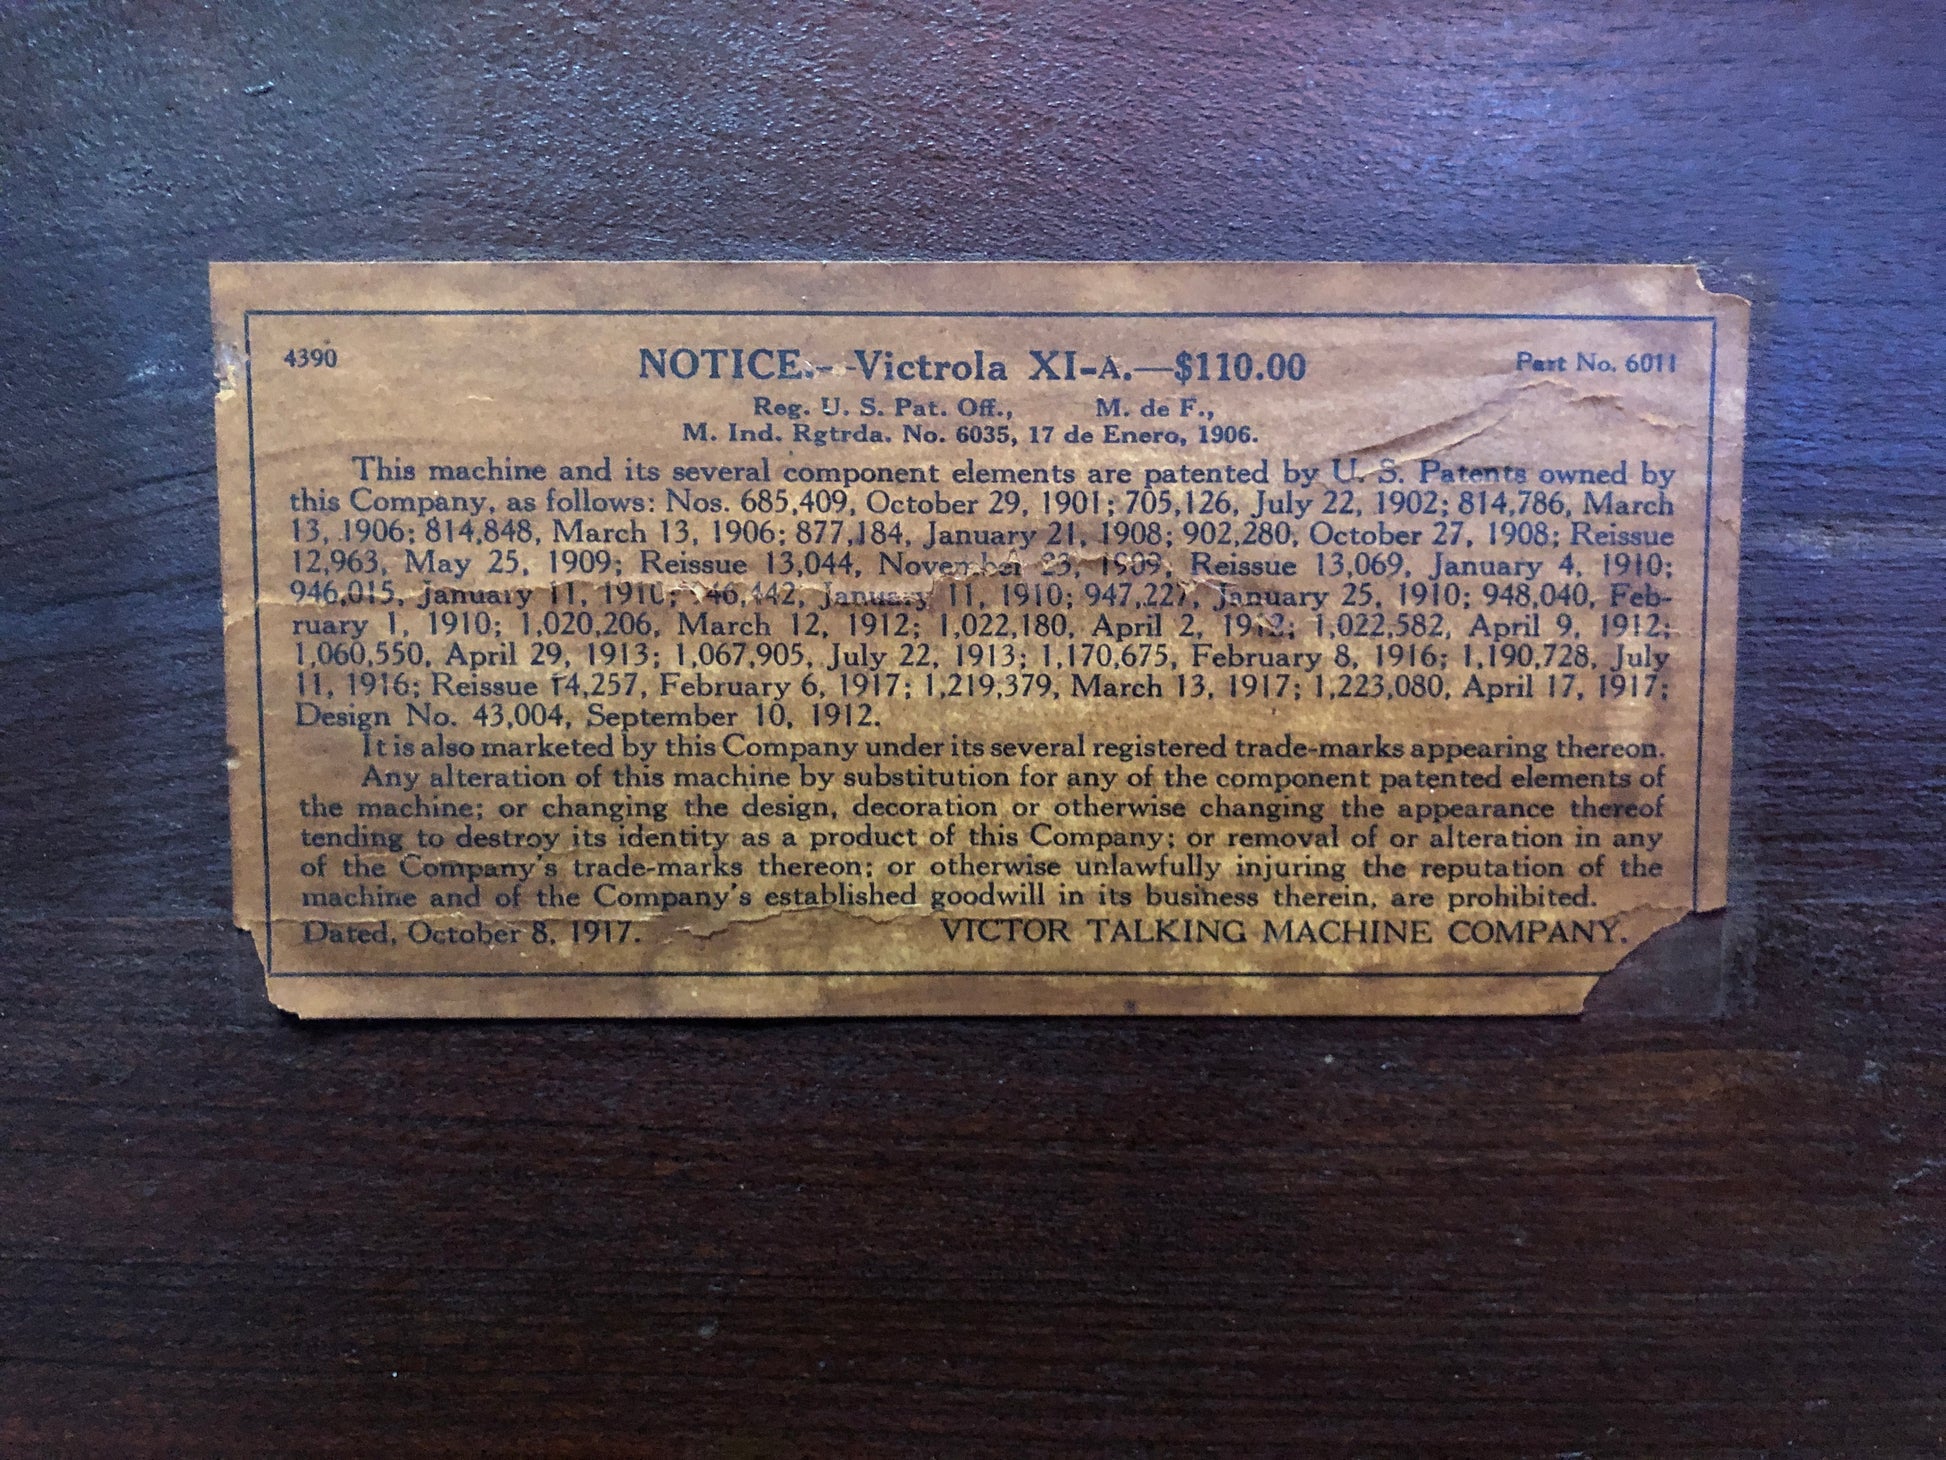 4390 NOTICE.--Victrola XI-A.—$110.00 Part No. 6011
Reg. U. S. Pat. Off., M. de F.,
M. Ind. Rgtrda. No. 6035, 17 de Enero, 1906.
This machine and its several component elements are patented by U. S. Patents owned by
this Company, as follows: Nos. 685,409, October 29, 1901; 705,126, July 22, 1902; 814,786, March
13, 1906; 814,848, March 13, 1906; 877,184, January 21, 1908; 902,280, October 27, 1908; Reissue
12,963, May 25, 1909; Reissue 13,044, November 23, 1909, Reissue 13,069, January 4, 1910;
946,015, January 11, 1910; 946,442, January 11, 1910; 947,227, January 25, 1910; 948,040, Feb-
ruary 1, 1910; 1,020,206, March 12, 1912; 1,022,180, April 2, 1912; 1,022,582, April 9, 1912;
1,060,550, April 29, 1913; 1,067,905, July 22, 1913; 1,170,675, February 8, 1916; 1,190,728, July
11, 1916; Reissue 14,257, February 6, 1917; 1,219,379, March 13, 1917; 1,223,080, April 17, 1917;
Design No. 43,004, September 10, 1912.
It is also marketed by this Company under its several registered trade-marks appearing thereon.
Any alteration of this machine by substitution for any of the component patented elements of
the machine; or changing the design, decoration or otherwise changing the appearance thereof
tending to destroy its identity as a product of this Company; or removal of or alteration in any
of the Company's trade-marks thereon; or otherwise unlawfully injuring the reputation of the
machine and of the Company's established goodwill in its business therein, are prohibited.
Dated, October 8, 1917. VICTOR TALKING MACHINE COMPANY.